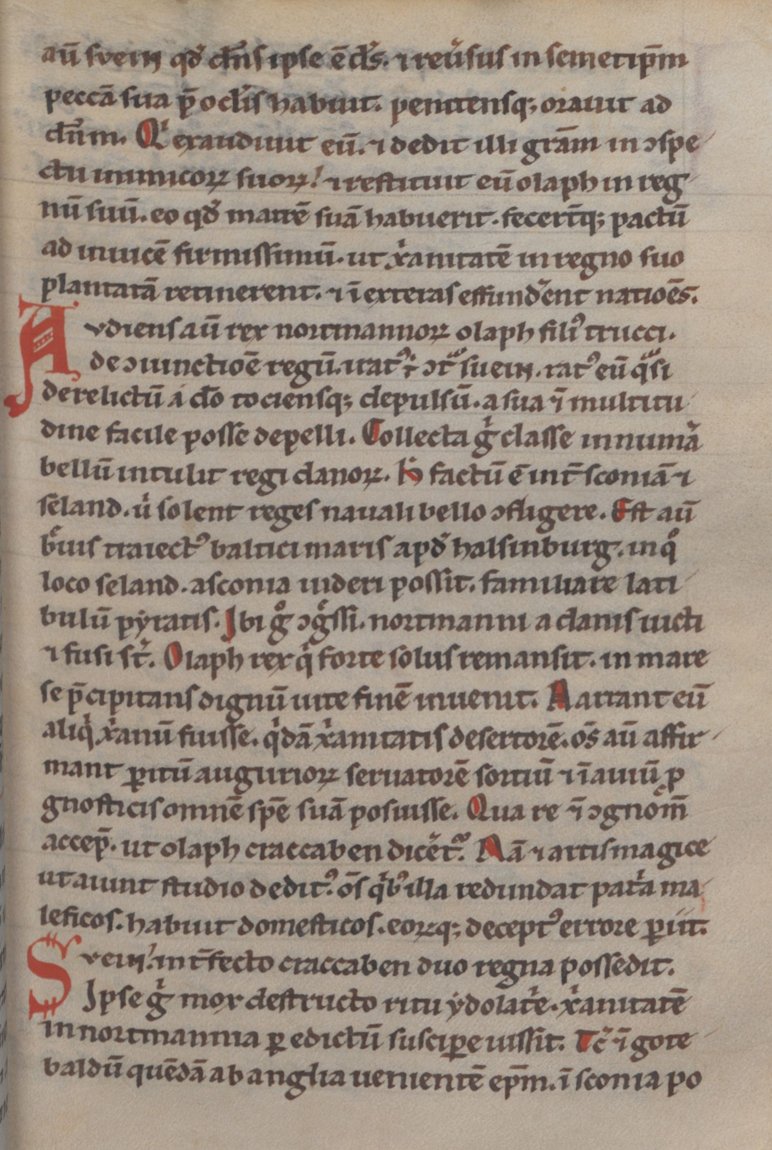 aū svein qd̄ dn̄s ipse ē ds̄. ⁊ reu̓sus in semetip̄m
peccā sua p̄ oclīs habuit. penitensq; orauit ad
dn̄m. Q̓ exaudiuit eū. ⁊ dedit illi grām in ɔspe
ctu inimicoꝝ suoꝝ! ⁊ restituit eū olaph in reg
nū suū. eo qd̄ matrē suā habuerit. fecert̄q; pactū
ad inuicē firmissimū. ut xr̓anitatē in regno suo
plantatā retinerent. ⁊ ī exteras effund̓ent natioēs.
Avdiens aū rex nortmannoꝝ olaph filiꝰ trucci.
de ɔiunctioē regū. iratꝰ ē ɔtͣ suein. ratꝰ eū qͣsi
derelictū á do tociensq; depulsū. a sua ī multitu
dine facile posse depelli. Collecta g̊ classe innum̓a
bellū intulit regi danoꝝ. h̄ factū ē int̄ sconiā ⁊
seland. u̓ solent reges nauali bello ɔfligere. Est aū
b̓uis traiectꝰ baltici maris apd̄ halsinburg. in q̊
loco seland. a sconia uideri possit. familiare lati
bulū pyratis. Ibi g̊ ɔgͤssi. nortmanni a danis uicti
⁊ fusi st̄. Olaph rex q̓ forte solus remansit. in mare
se p̄cipitans dignū uite finē inuenit. Narrant eū
aliq̓ xr̓anū fuisse. q̓dā xr̓anitatis desertorē. om̄s aū affir
mant ꝑitū augurioꝝ seruatorē sortiū ⁊ ī auiū ꝓ
gnosticis omnē spē suā posuisse. Qua re ⁊ ɔgnom̄
accep̄. ut olaph craccaben dicer̄tᷣ. Nā ⁊ artis magice
ut aiunt studio deditꝰ. om̄s q̓bꝰ illa redundat patr̓a ma
leficos. habuit domesticos. eoꝝq; deceptꝰ errore ꝑiit.
Svein! int̄fecto craccaben duo regna possedit.
Ipse g̊ mox destructo ritu ydolatr̓e. xr̓anitatē
in nortmannia ꝑ edictū suscipe iussit. Tc̄ ⁊ gote
baldū quendā ab anglia uenientē ep̄m. ī sconia po